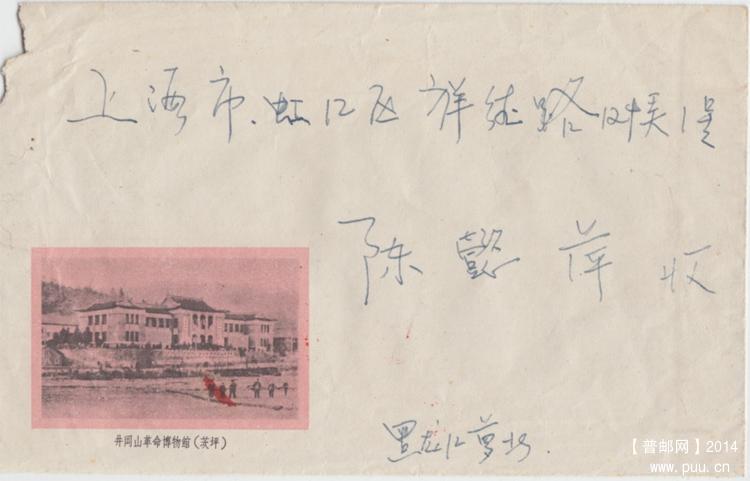 上海市、虹口区祥德路
陈懿萍 收
井岡山革命博物館（茨坪）
黑龙江萝北
【普邮网】2014
www.puu.cn